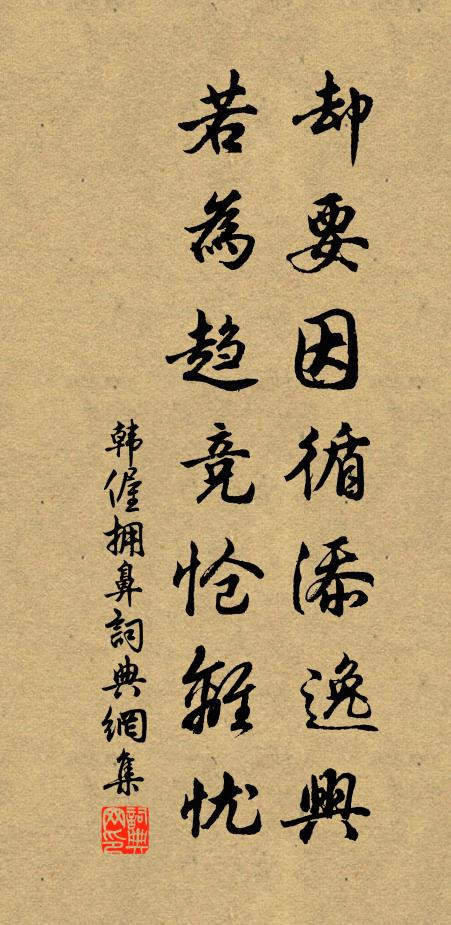 却要因循添逸興
若為趋竞怆離忧
韩偓拥鼻詞典網集
詞典网印